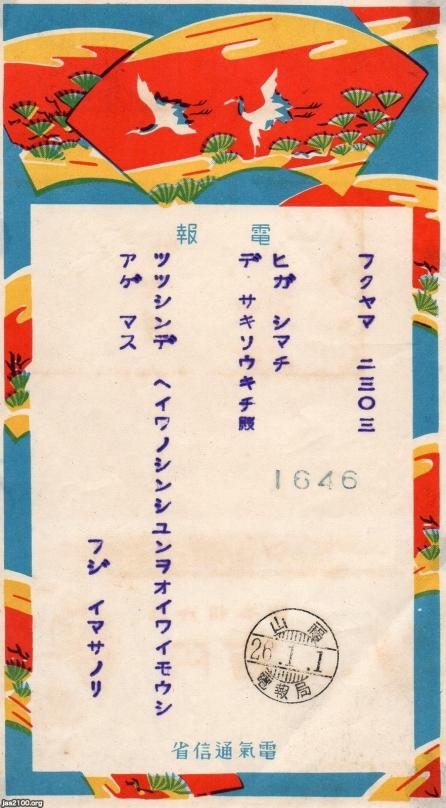 電報
フクヤマ 二三〇三
ヒガ シマチ
デ サキソウキチ殿
ツツシンデ ヘイワノシンシユンヲオイワイモウシ
アゲ マス
フジ イマサノリ
1646
福山
26.1.1
電報局
電氣通信省
jaa2100.org